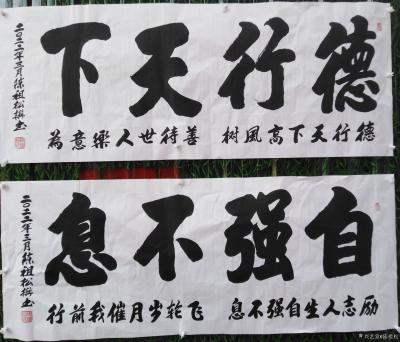 德行天下
德行天下高風树 善待世人樂意為
二〇二二年三月陈祖松撰书
自强不息
励志人生自强不息 飞轮岁月催我前行
二〇二二年三月陈祖松撰书